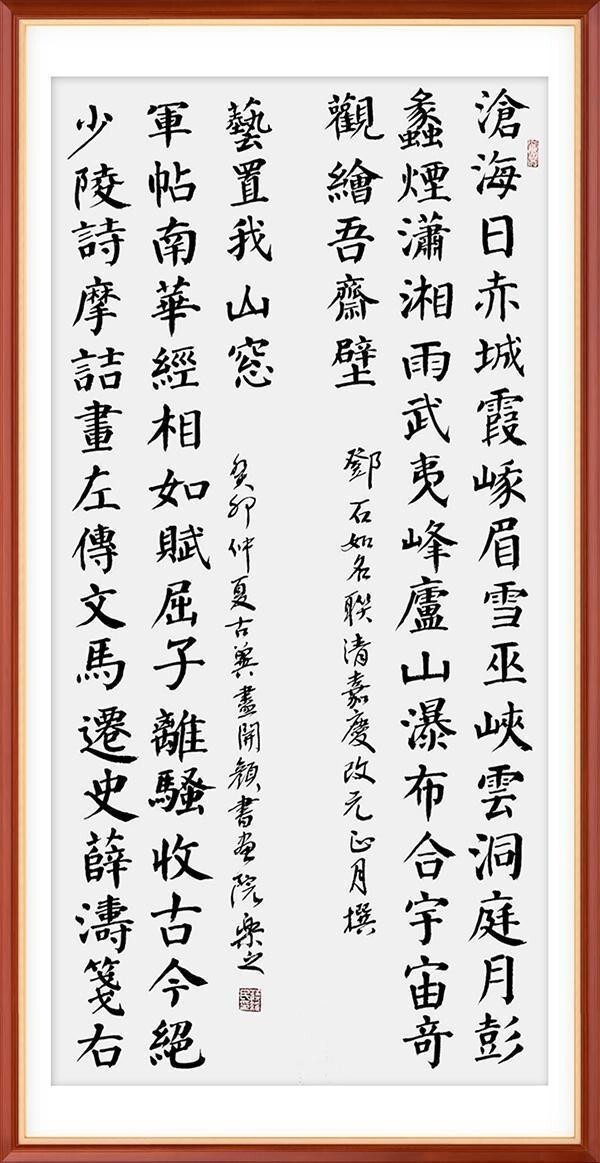 滄海日赤城霞峨眉雪巫峽雲洞庭月彭
蠡煙瀟湘雨武夷峰廬山瀑布合宇宙奇
觀繪吾齋壁
鄧石如名聯清嘉慶改元正月撰
少陵詩摩詰畫左傳文馬遷史薛濤箋右
軍帖南華經相如賦屈子離騷收古今絕
藝置我山窓
癸卯仲夏古冀盡開顏書画院樂之